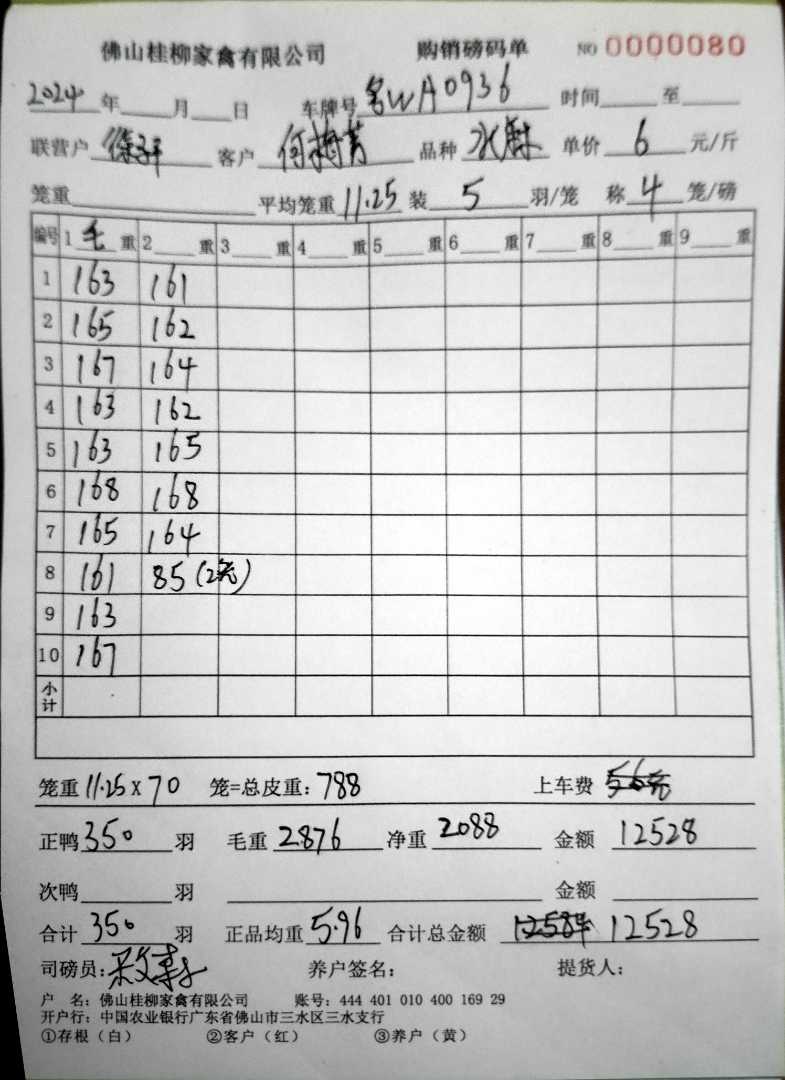 佛山桂柳家禽有限公司 购销磅码单 NO 0000080
2024 年 月 日 车牌号 WA0936 时间 至
联营户 客户 何梅菁 品种 水麻 单价 6 元/斤
笼重 平均笼重 11.25 装 5 羽/笼 称 4 笼/磅
编号 1 毛 重 2 重 3 重 4 重 5 重 6 重 7 重 8 重 9 重
1 163 161
2 165 162
3 167 164
4 163 162
5 163 165
6 168 168
7 165 164
8 161 85 (2笼)
9 163
10 167
小计
笼重 11.25 x 70 笼=总皮重: 788 上车费 56元
正鸭 350 羽 毛重 2876 净重 2088 金额 12528
次鸭 羽 金额
合计 350 羽 正品均重 5.96 合计总金额 12528
司磅员: 养户签名: 提货人:
户 名: 佛山桂柳家禽有限公司 账号: 444 401 010 400 169 29
开户行: 中国农业银行广东省佛山市三水区三水支行
①存根（白） ②客户（红） ③养户（黄）